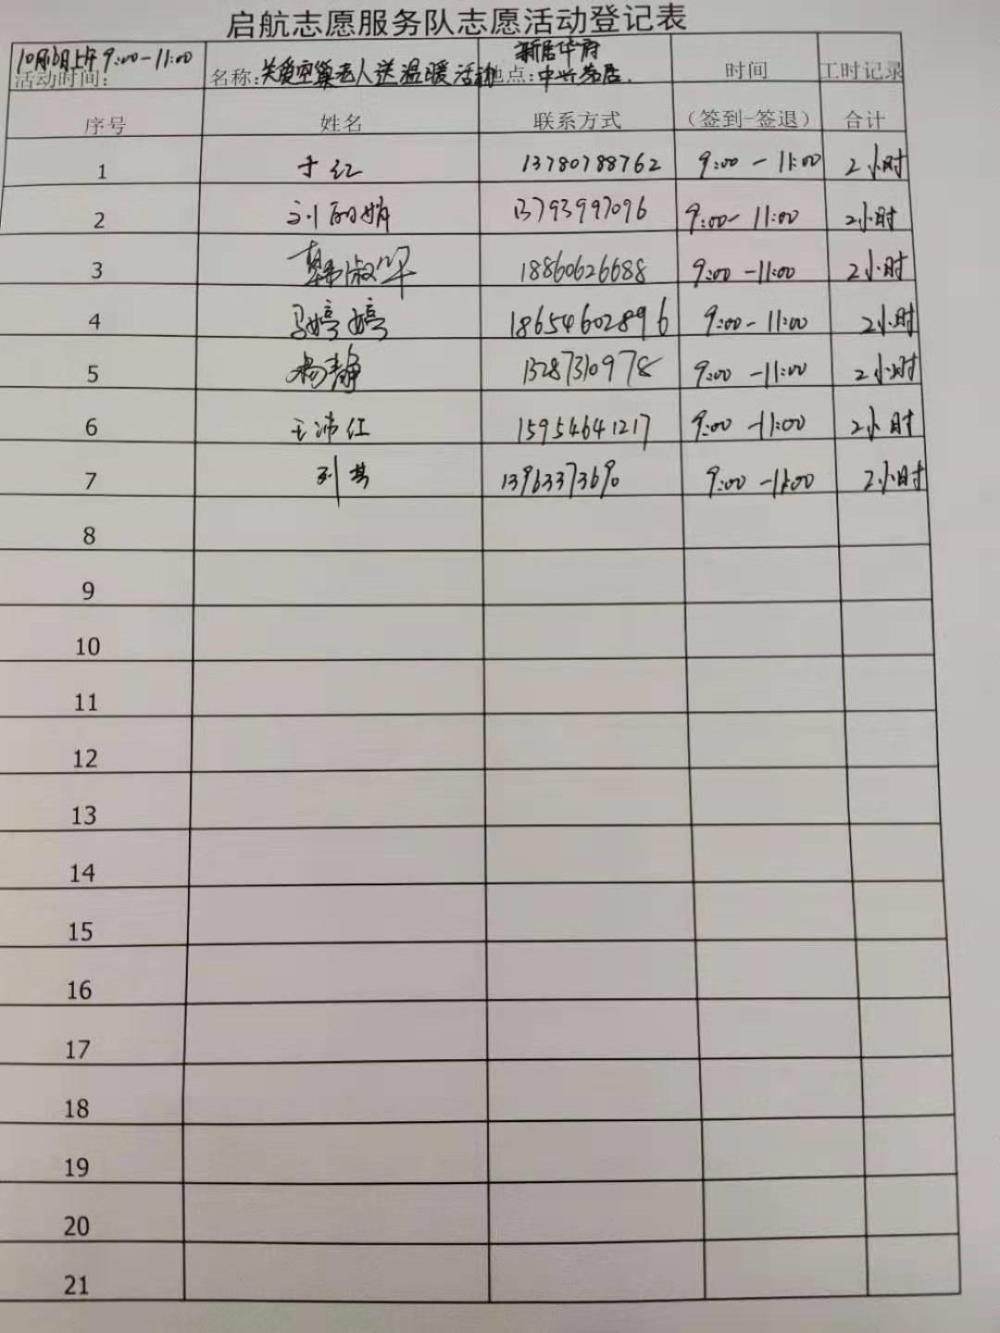 启航志愿服务队志愿活动登记表
10月6日上午9:00-11:00 新居华府
活动时间: 名称:关爱空巢老人送温暖活动 地点: 时间 工时记录
序号 姓名 联系方式 (签到-签退) 合计
1 于红 13780788762 9:00-11:00 2小时
2 13793997096 9:00-11:00 2小时
3 韩淑军 18860626688 9:00-11:00 2小时
4 马婷婷 18654602896 9:00-11:00 2小时
5 杨静 13287310978 9:00-11:00 2小时
6 王沛红 15954641217 9:00-11:00 2小时
7 13963373690 9:00-11:00 2小时
8
9
10
11
12
13
14
15
16
17
18
19
20
21